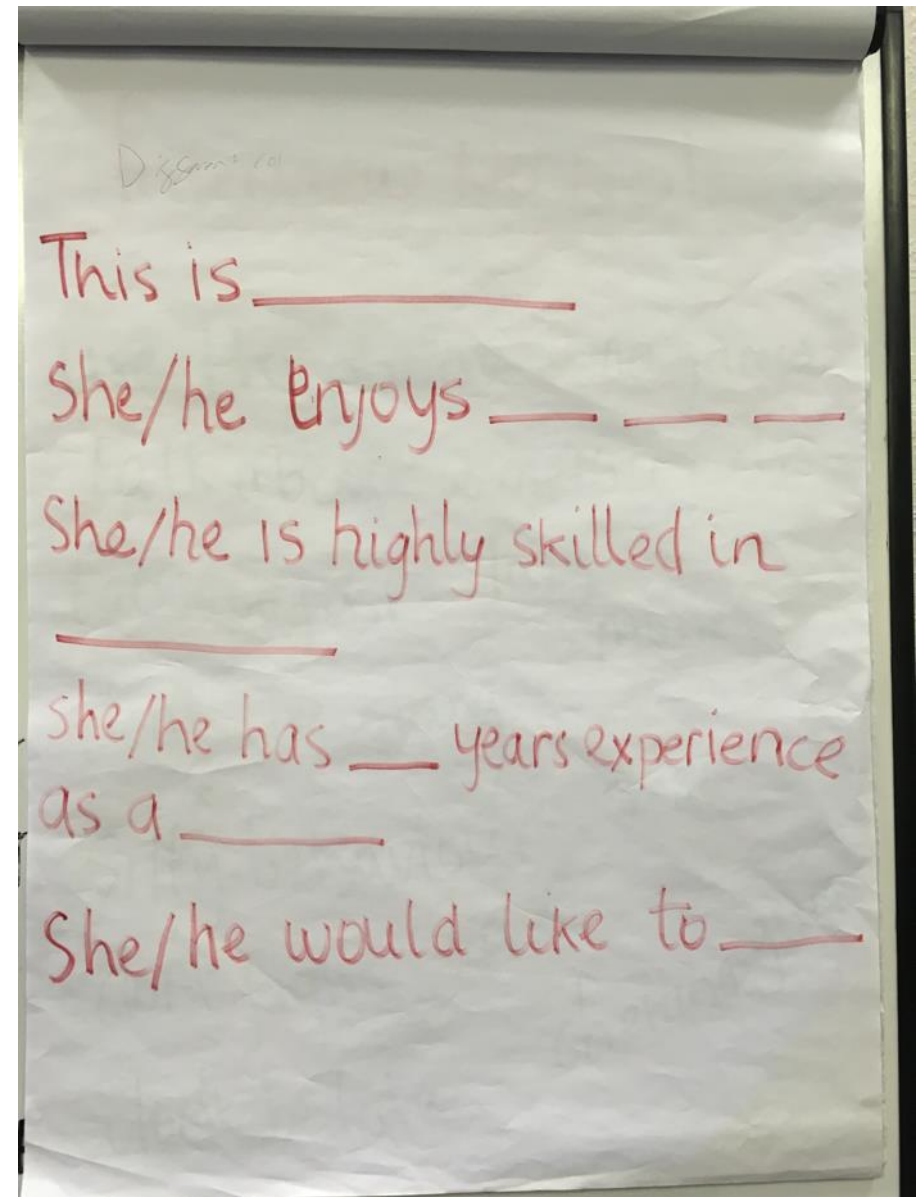 This is ________
She/he enjoys ___ ___ ___
She/he is highly skilled in
________
she/he has ___ years experience
as a ______
She/he would like to ____